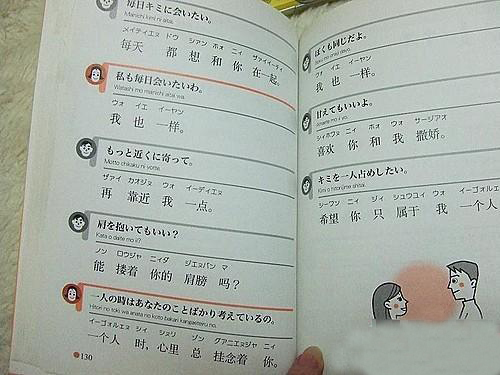 毎日キミに会いたい。
Mainichi kimi ni aitai.
メイティエヌ ドウ シアン ホォ ニィ ヅァイイーティ
每天 都 想 和 你 在一起。
私も毎日会いたいわ。
Watashi mo mainichi aitai wa.
ウォ イエ イーヤン
我 也 一样。
もっと近くに寄って。
Motto chikaku ni yotte.
ヅァイ カオジヌ ウォ イーディエヌ
再 靠近 我 一点。
肩を抱いてもいい？
Kata o daite mo ii?
ノン ロウジャ ニィダ ジエヌバン マ
能 搂着 你的 肩膀 吗？
一人の時はあなたのことばかり考えているの。
Hitori no toki wa anata no koto bakari kangaeteru no.
イーゴォルエヌ シィ シヌリ ゾン グアニエヌジャ ニィ
一个人 时，心里 总 挂念着 你。
130
ぼくも同じだよ。
ウォ イエ イーヤン
我 也 一样。
甘えてもいいよ。
シィホワヌ ニィ ホォ ウォ サージアオ
喜欢 你 和 我 撒娇。
キミを一人占めしたい。
Kimi o hitorijime shitai.
シーワン ニィ ジィ シュウユイ ウォ イーゴォルエ
希望 你 只 属于 我 一个人